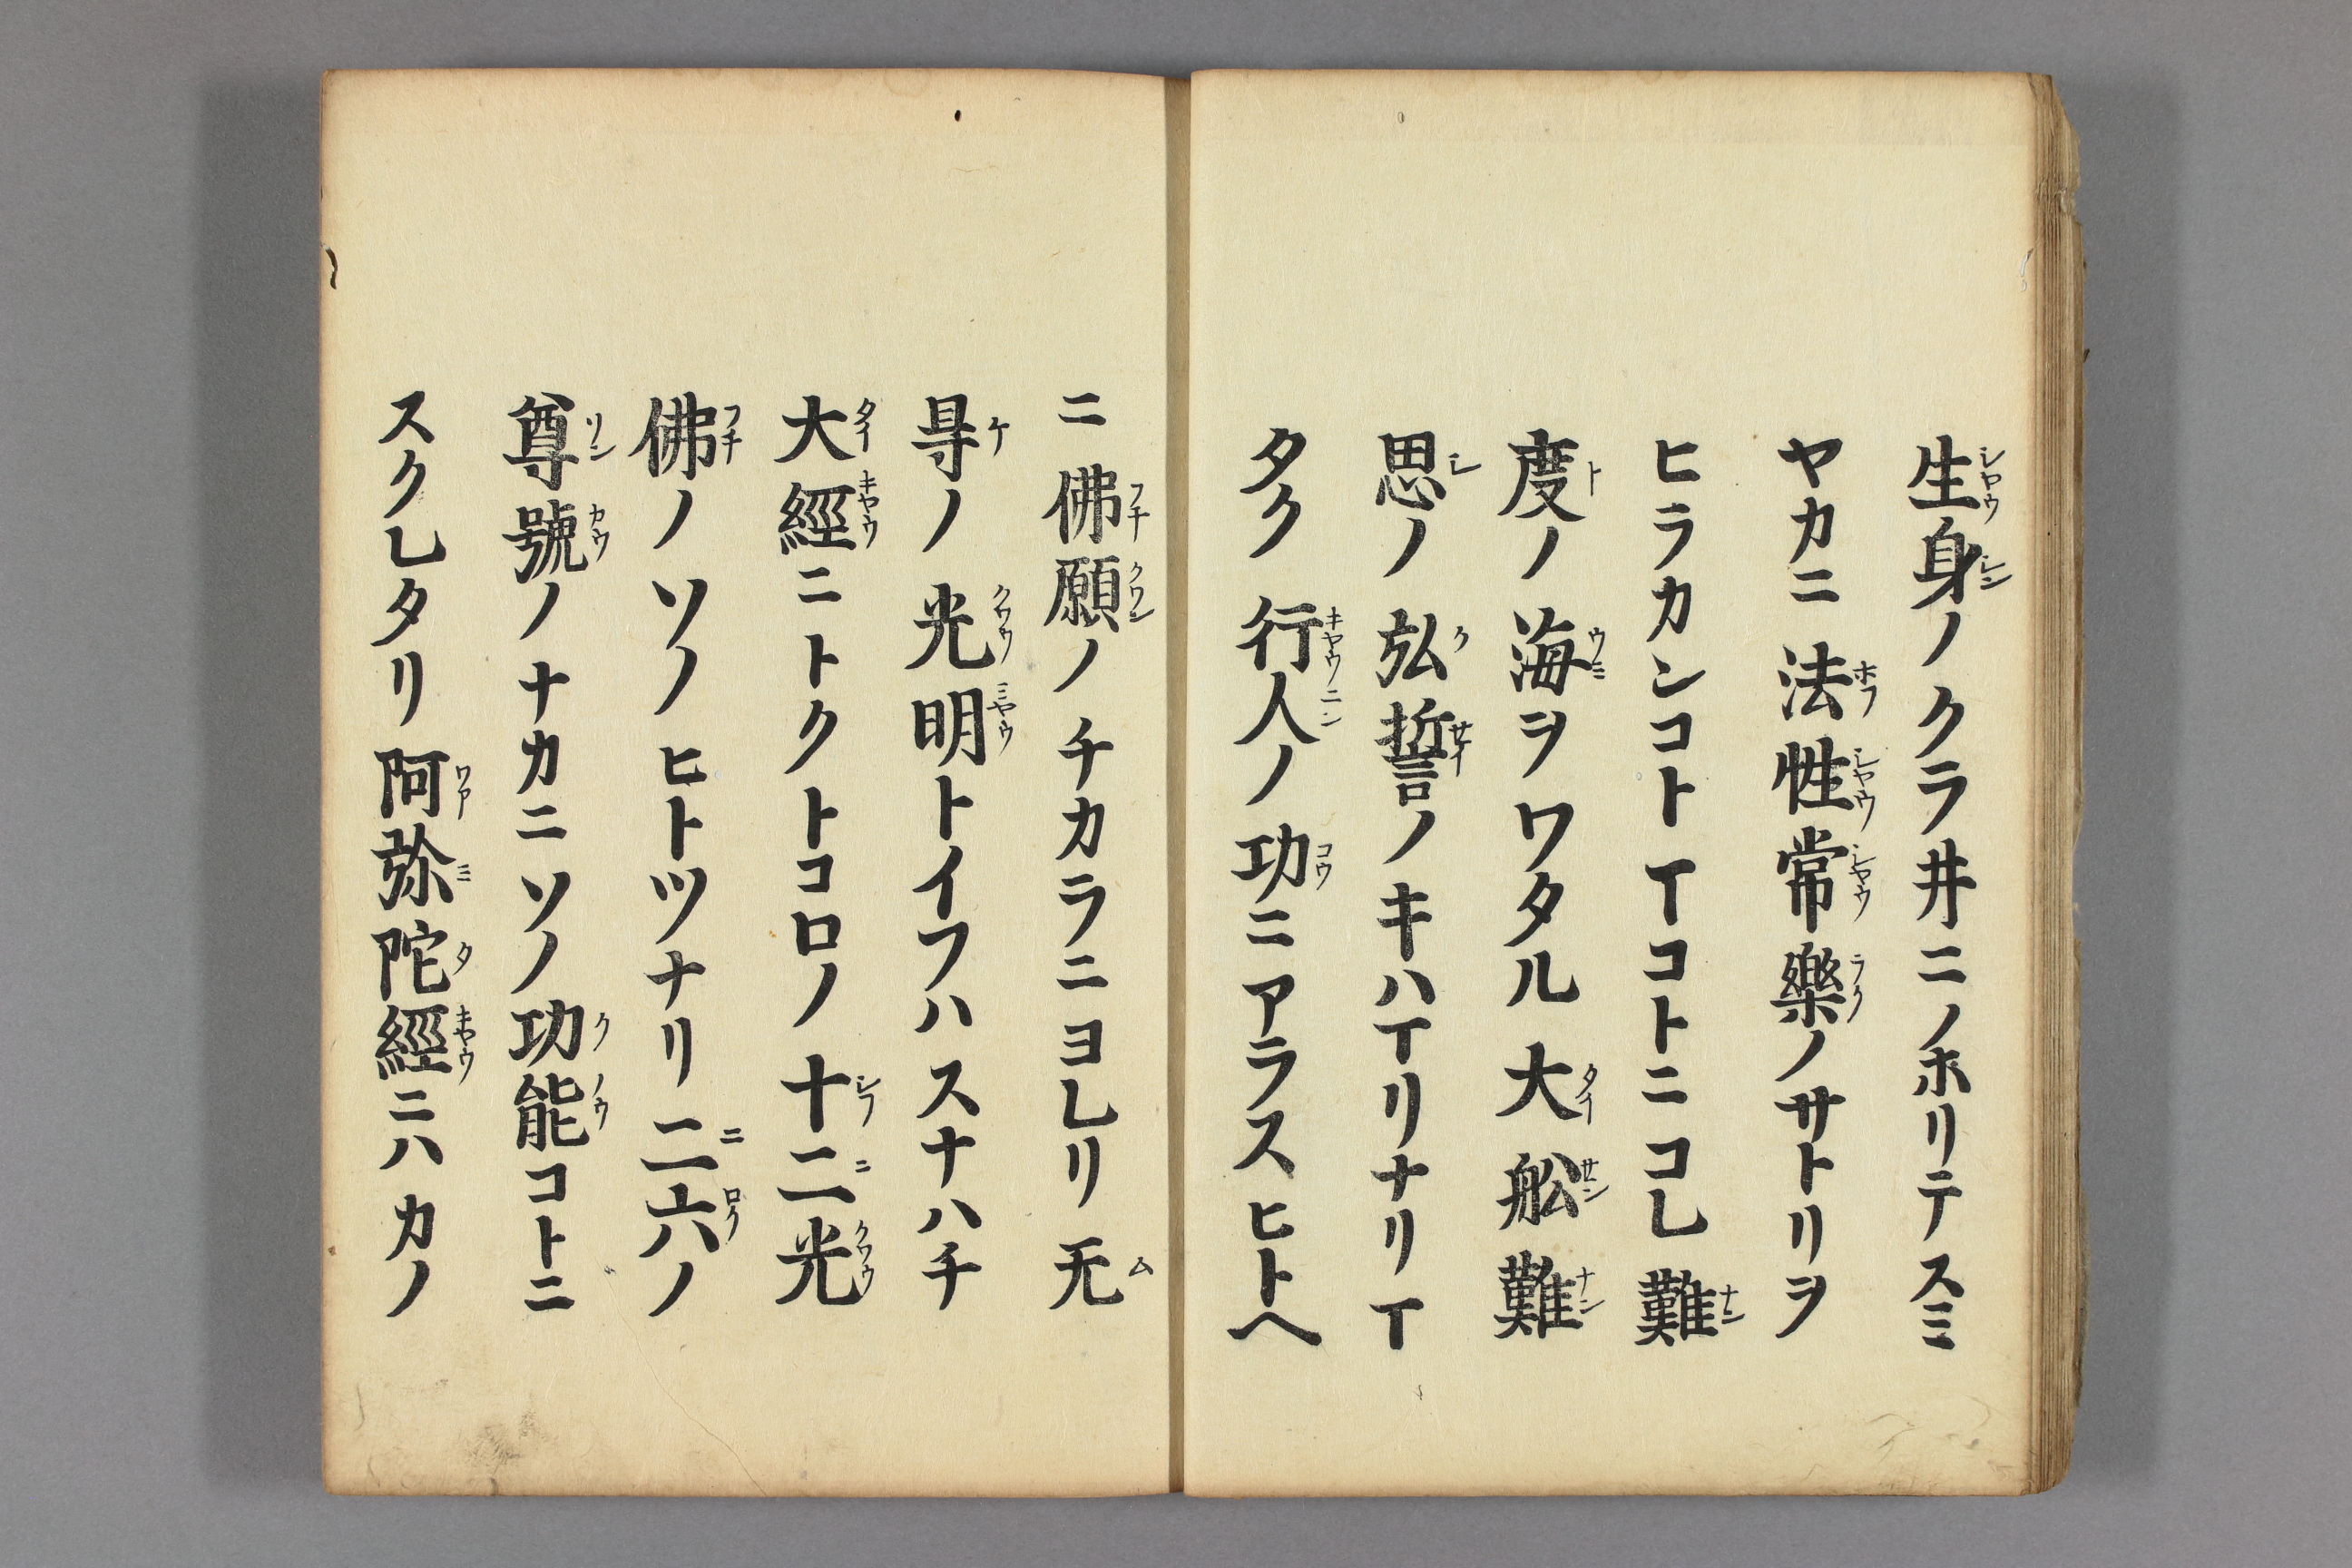 生身ノクラ井ニノホリテスミ
ヤカニ法性常樂ノサトリヲ
ヒラカンコト丅コトニコレ難
度ノ海ヲワタル大舩難
思ノ弘誓ノキハ丅リナリ丅
タク行人ノ功ニアラスヒトヘ
ニ佛願ノチカラニヨレリ无
㝵ノ光明トイフハスナハチ
大經ニトクトコロノ十二光
佛ノソノヒトツナリ二六ノ
尊號ノナカニソノ功能コトニ
スクレタリ阿弥陀經ニハカノ